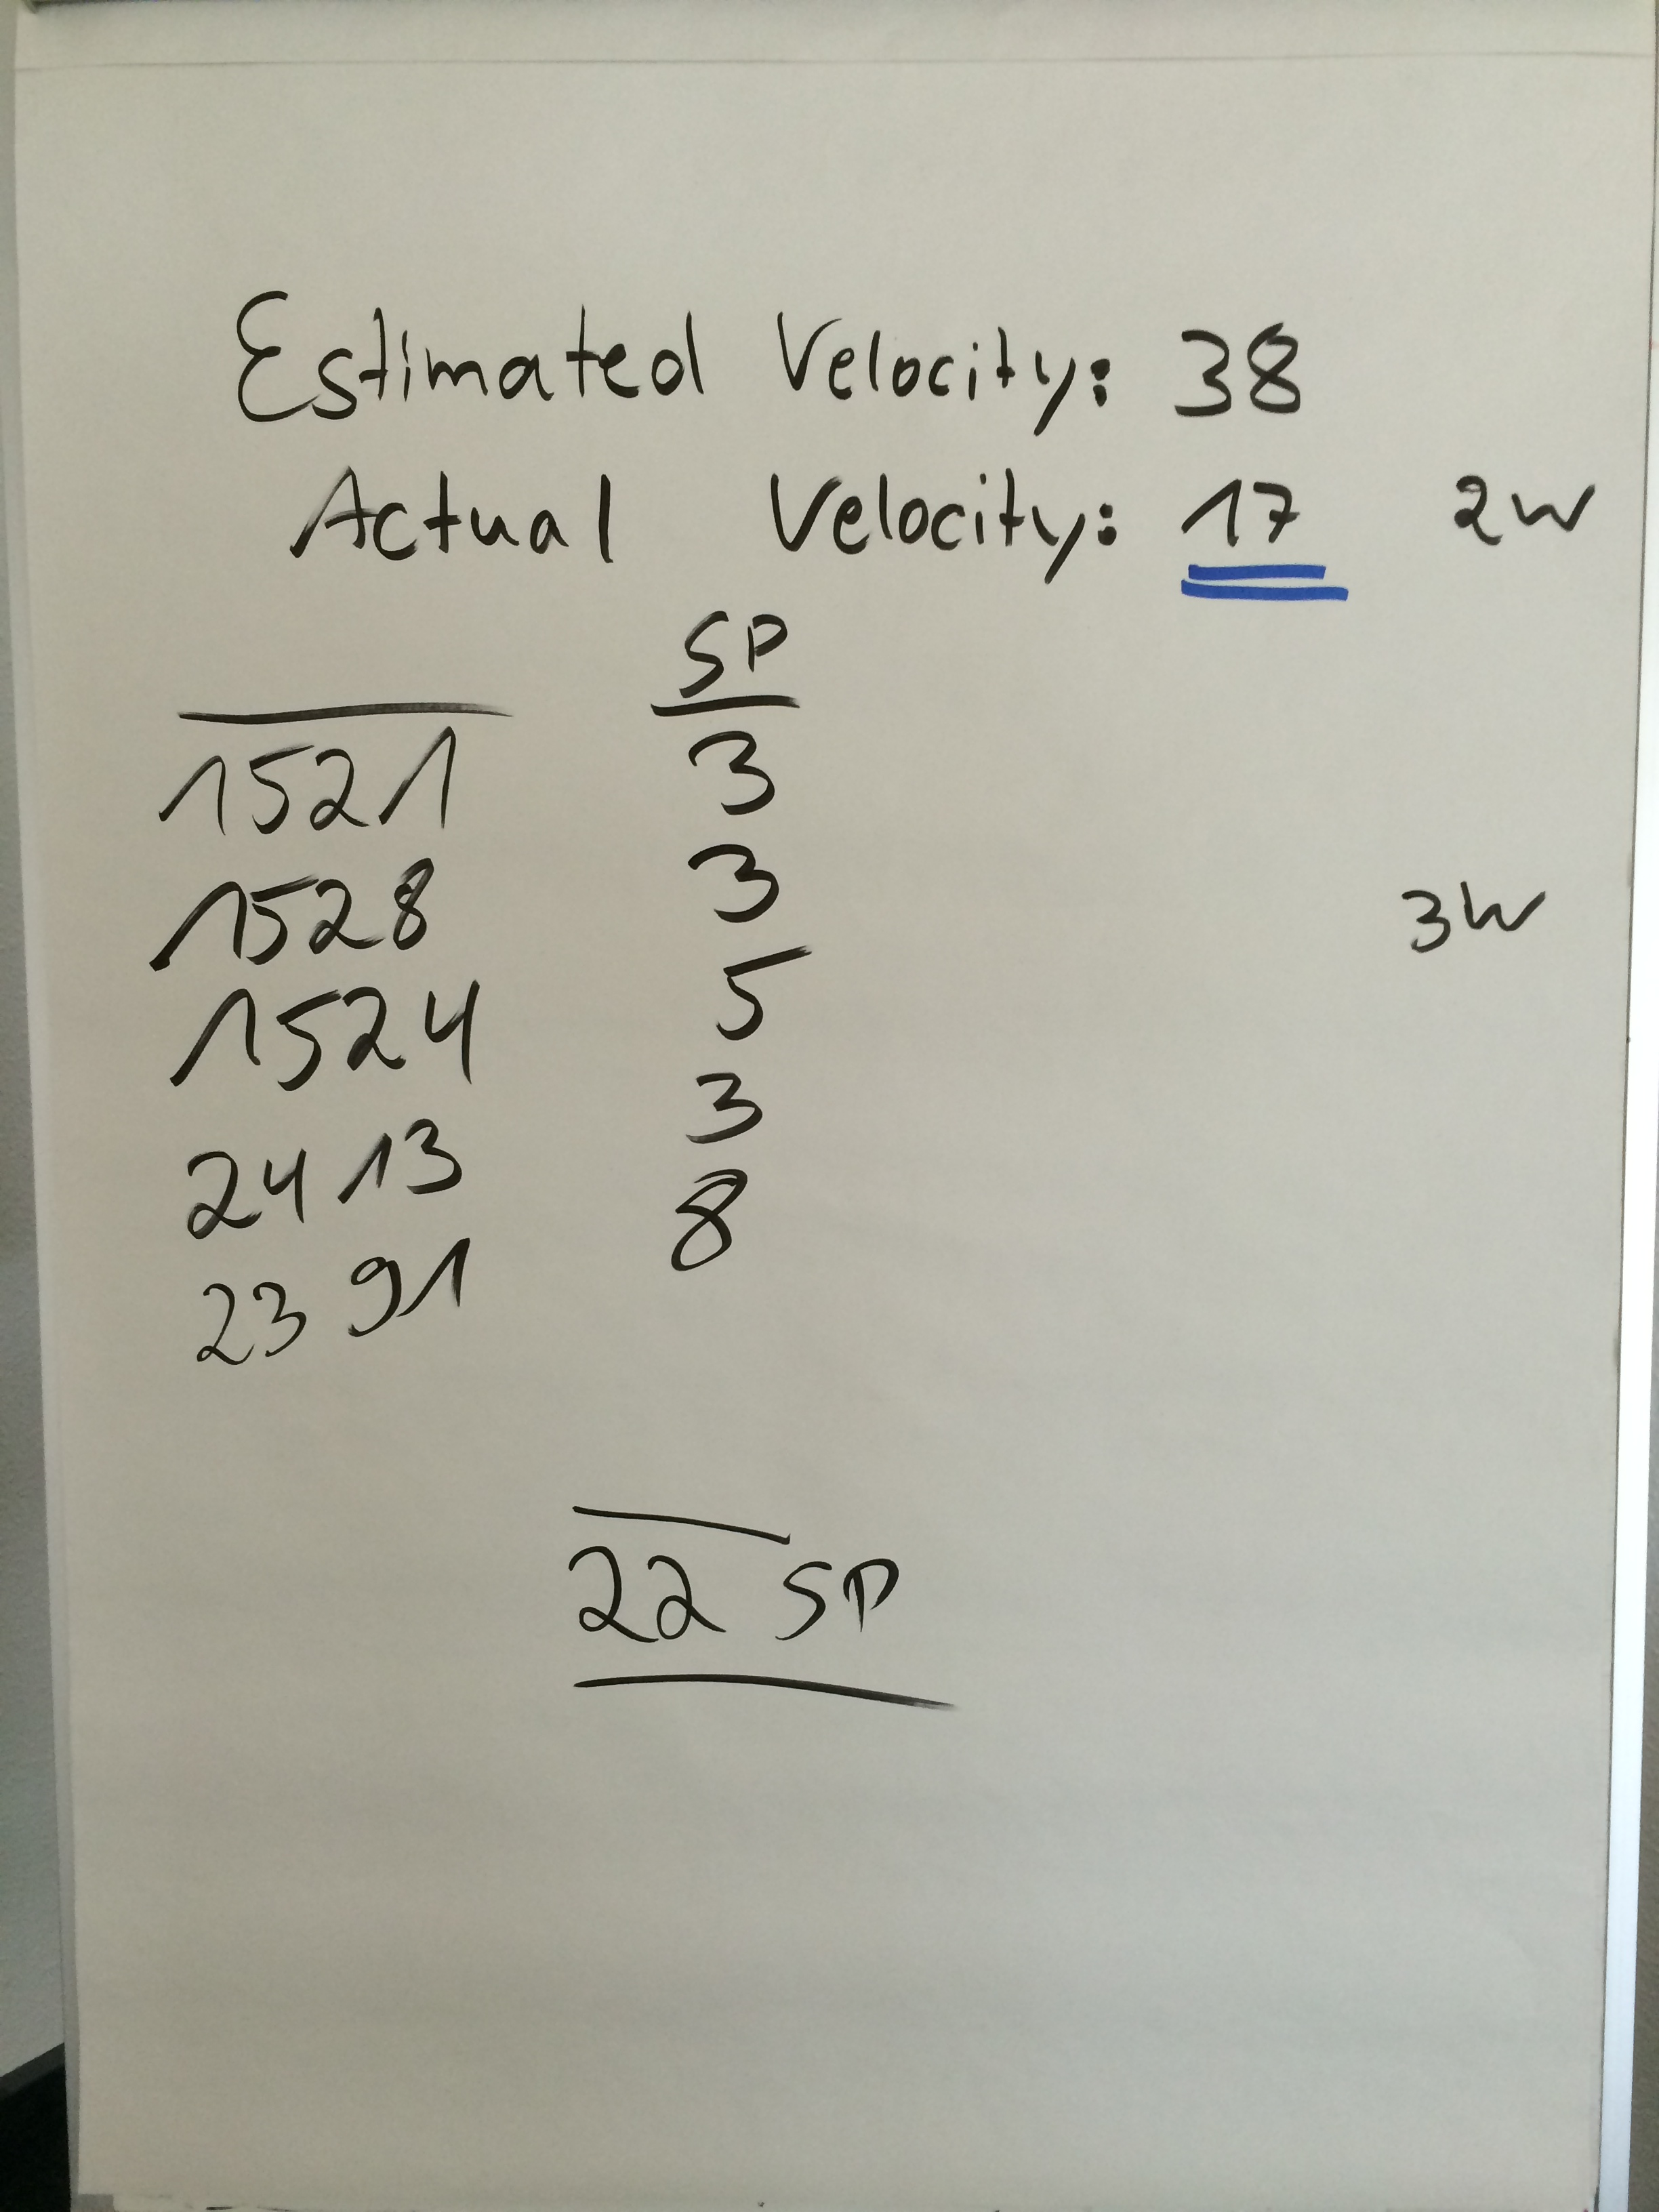 Estimated Velocity: 38
Actual Velocity: 17 2W
SP
1521 3
1528 3
3W
1524 5
2413 3
2391 8
22 SP